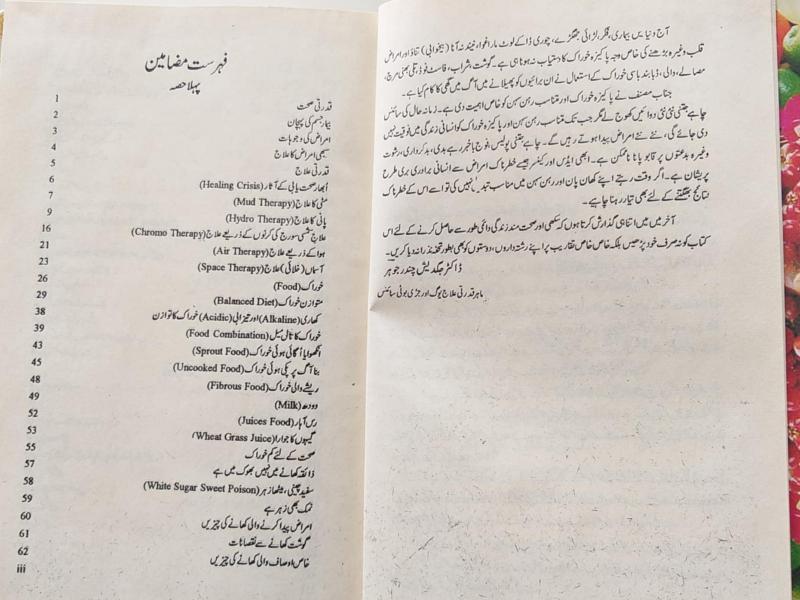 آج دنیا میں بیماری، فکر، لڑائی جھگڑے، چوری ڈاکے لوٹ مار اغوا، نیند نہ آنا (بیخوابی) تناؤ اور امراض
قلب وغیرہ بڑھنے کی خاص وجہ پاکیزہ خوراک کا دستیاب نہ ہونا ہی ہے۔ گوشت، شراب، فاسٹ فوڈ، تلی بھنی مرچ،
مصالے، والی، ڈبا بند باسی خوراک کے استعمال نے ان برائیوں کو پھیلانے میں آگ میں گھی کا کام کیا ہے۔
جناب مصنف نے پاکیزہ خوراک اور متناسب رہن سہن کو خاص اہمیت دی ہے۔ زمانہ حال کی سائنس
چاہے جتنی نئی نئی دوائیں کھوج لے مگر جب تک متناسب رہن سہن اور پاکیزہ خوراک کو انسانی زندگی میں فوقیت نہیں
دی جائے گی، نئے نئے امراض پیدا ہوتے رہیں گے۔ چاہے جتنی پولیس، فوج باخبر رہے بدی، بدکرداری، رشوت
وغیرہ بدعتوں پر قابو پانا ناممکن ہے۔ ابھی ایڈس اور کینسر جیسے خطرناک امراض سے انسانی برادری بری طرح
پریشان ہے۔ اگر وقت رہتے اپنے کھان پان اور رہن سہن میں مناسب تبدیلیاں نہیں کی تو اسے کے خطرناک
نتائج بھگتنے کے لئے بھی تیار رہنا چاہیے۔
آخر میں میں اتنا ہی گذارش کرتا ہوں کہ سکھی اور صحت مند زندگی دائمی طور سے حاصل کرنے کے لئے اس
کتاب کو نہ صرف خود پڑھیں بلکہ خاص خاص تقاریب پر اپنے رشتہ داروں، دوستوں کو بھی بطور تحفہ نذرانہ دیا کریں۔
ڈاکٹر جگدیش چندر جوہر
ماہر قدرتی علاج یوگ اور جڑی بوٹی سائنس
فہرست مضامین
پہلا حصہ
قدرتی صحت 1
بیمار جسم کی پہچان 2
امراض کی وجوہات 3
سبھی امراض کا علاج 4
قدرتی علاج 5
ابھار صحت یابی کے آثار (Healing Crisis) 6
مٹی کا علاج (Mud Therapy) 7
پانی کا علاج (Hydro Therapy) 9
علاج شمسی سورج کی کرنوں کے ذریعے علاج (Chromo Therapy) 16
ہوا کے ذریعے علاج (Air Therapy) 21
آسماں (خلائی) علاج (Space Therapy) 23
خوراک (Food) 26
متوازن خوراک (Balanced Diet) 29
کھاری (Alkaline) اور تیزابی (Acidic) خوراک کا توازن 38
خوراک کا تال میل (Food Combination) 39
انکھوایا اُگائی ہوئی خوراک (Sprout Food) 43
بنا آگ پر پکی ہوئی خوراک (Uncooked Food) 45
ریشے والی خوراک (Fibrous Food) 48
دودھ (Milk) 49
رس آہار (Juices Food) 52
گیہوں کا جوارا (Wheat Grass Juice) 53
صحت کے لئے کم خوراک 55
ذائقہ کھانے میں نہیں بھوک میں ہے 57
سفید چینی، میٹھا زہر (White Sugar Sweet Poison) 58
نمک بھی زہر ہے 59
امراض پیدا کرنے والی کھانے کی چیزیں 60
گوشت کھانے سے نقصانات 61
خاص اوصاف والی کھانے کی چیزیں 62
iii